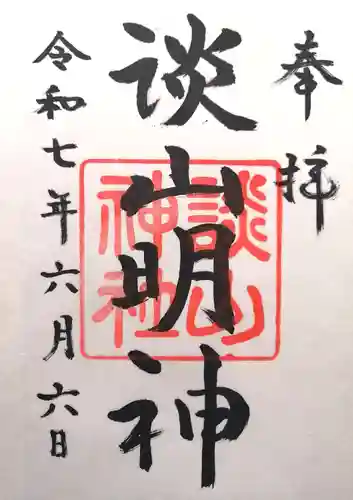 奉拝
談山明神
談山神社
令和七年六月六日